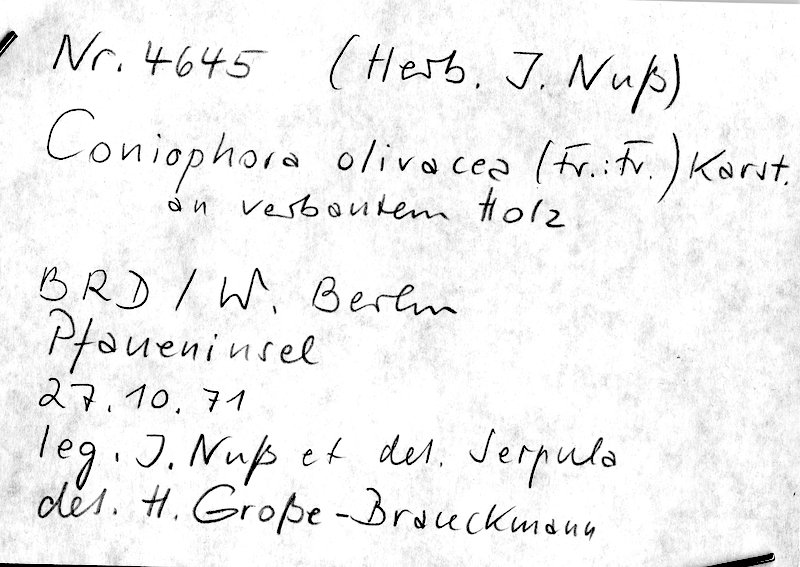 Nr. 4645 (Herb. J. Nuß)
Coniophora olivacea (Fr.:Fr.) Karst.
an verbautem Holz
BRD / W. Berlin
Pfaueninsel
27.10.71
leg. J. Nuß et det. Serpula
det. H. Große-Brauckmann